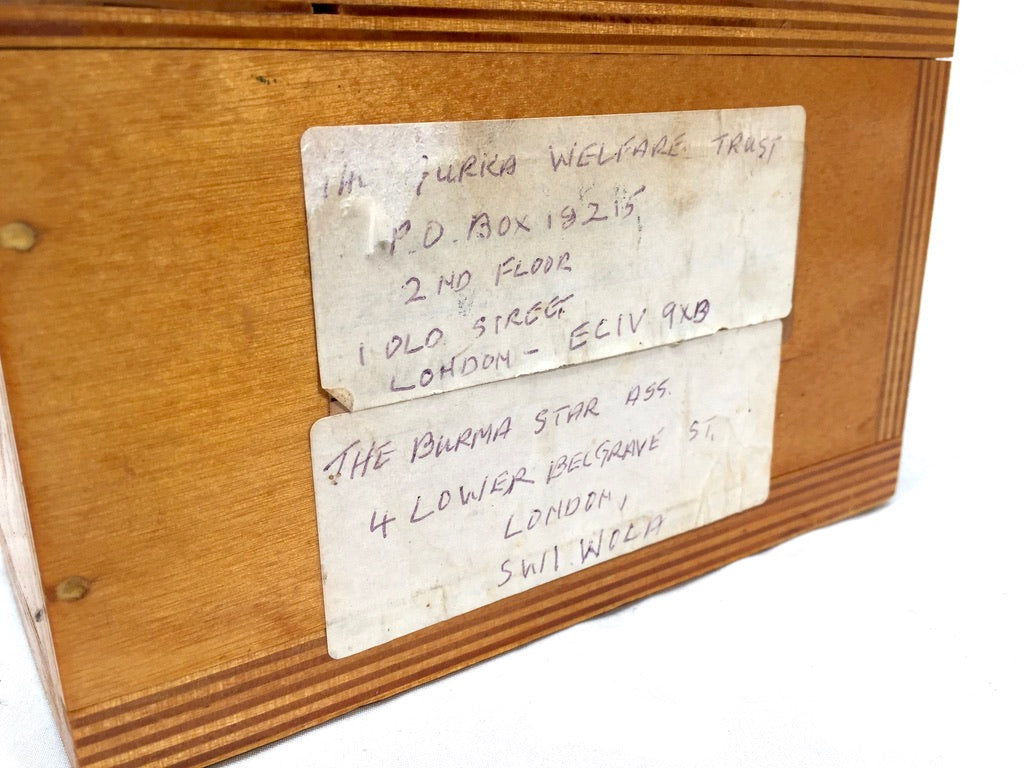 THE GURKA WELFARE TRUST
P.O. BOX 18215
2ND FLOOR
1 OLD STREET
LONDON - EC1V 9XB
THE BURMA STAR ASS.
4 LOWER BELGRAVE ST.
LONDON,
SW1 WOLA